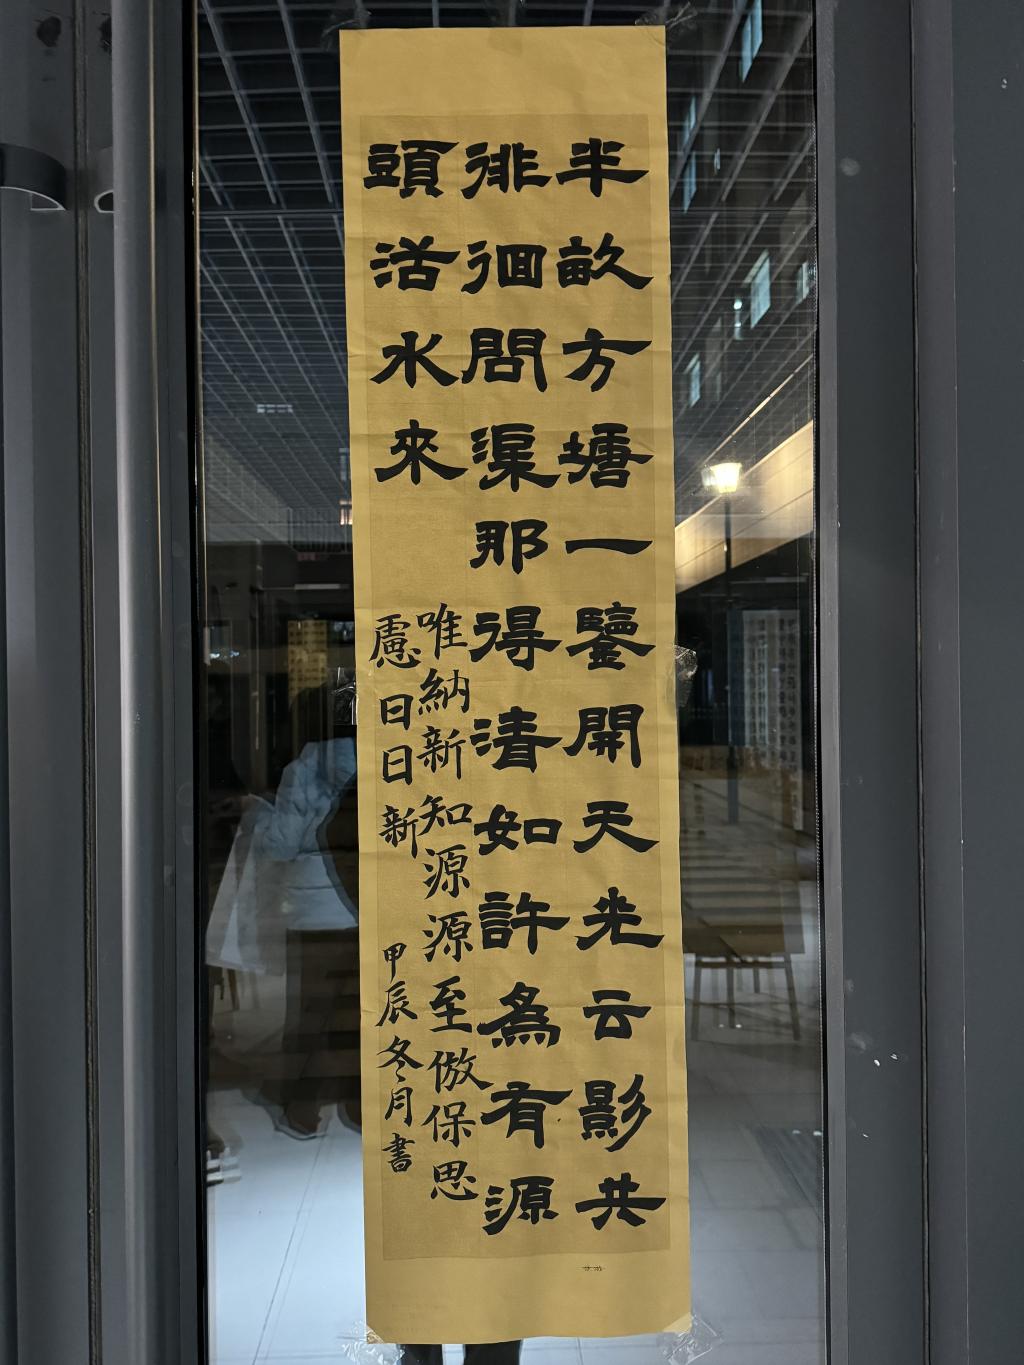 半畝方塘一鑒開天光云影共
徘徊問渠那得清如許為有源
頭活水來
唯納新知源源至倣保思
慮日日新
甲辰冬月書